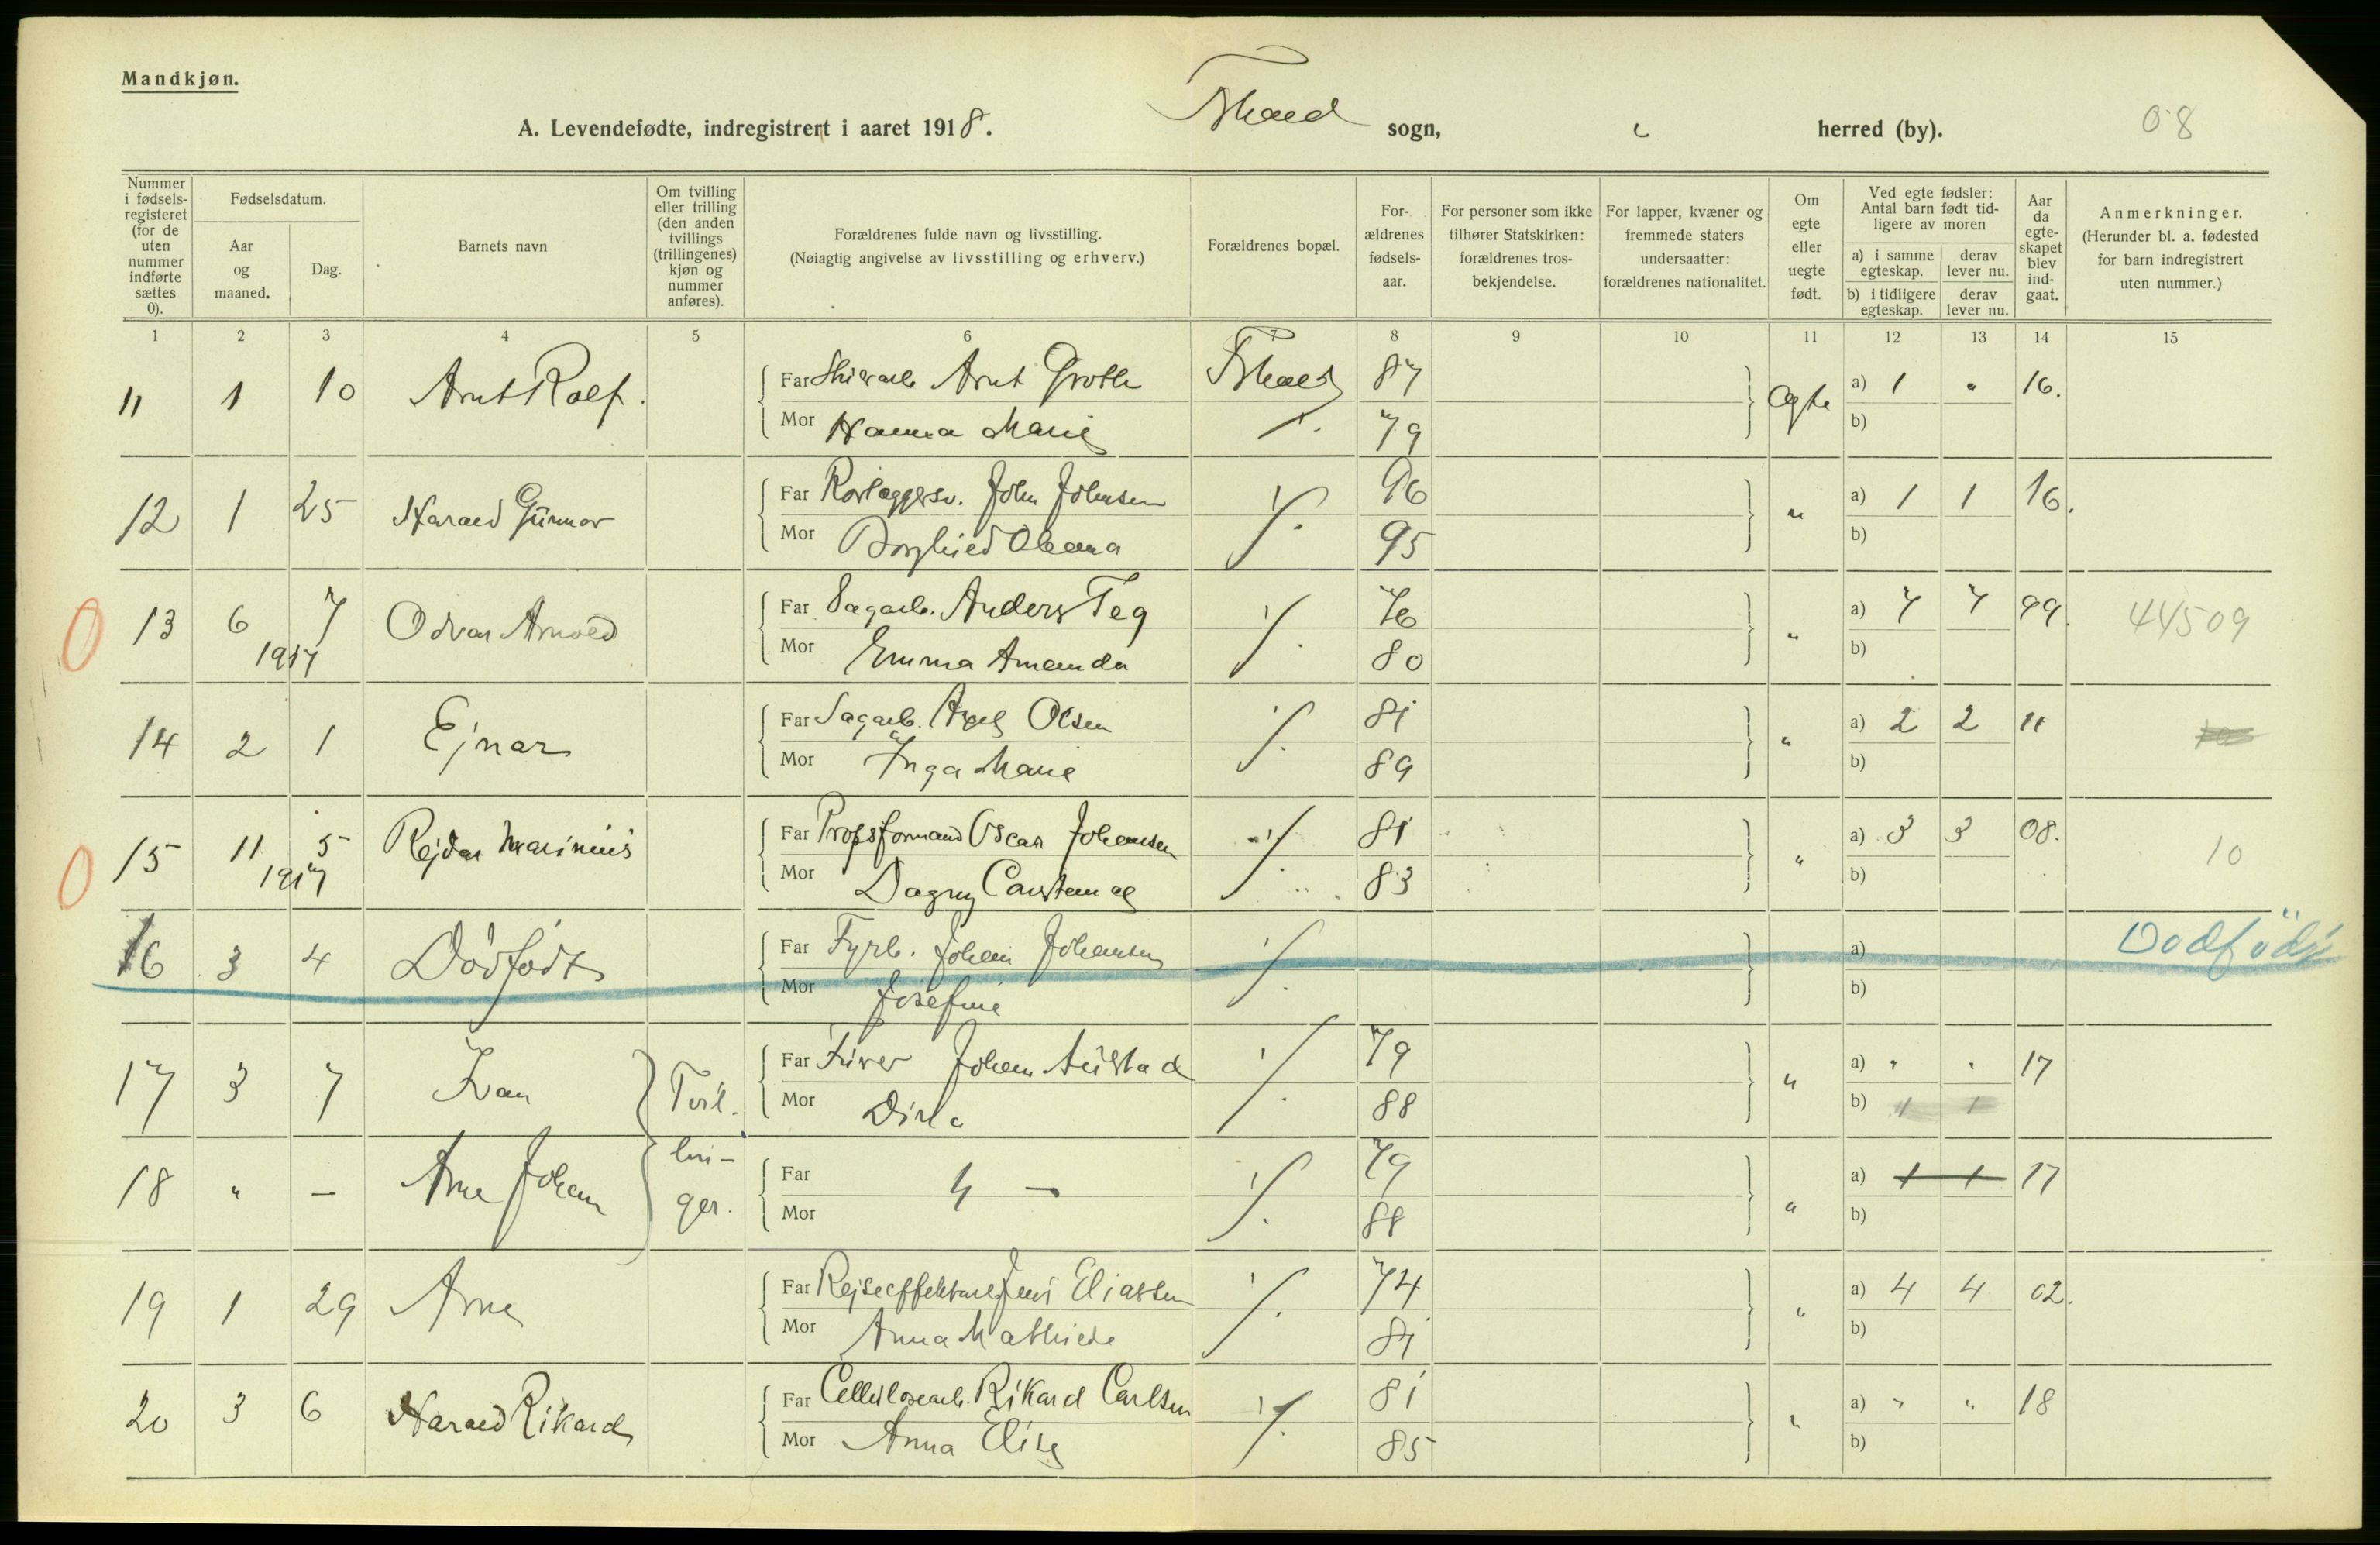 Mandkjøn.
A. Levendefødte, indregistrert i aaret 1918. sogn, herred (by). 08
Nummer i fødselsregisteret (for de uten nummer indførte sættes 0).
Fødselsdatum.
Aar og maaned.
Dag.
Barnets navn
Om tvilling eller trilling (den anden tvillings (trillingenes) kjøn og nummer anføres).
Forældrenes fulde navn og livsstilling.
(Nøiagtig angivelse av livsstilling og erhverv.)
Forældrenes bopæl.
For-ældrenes fødsels-aar.
For personer som ikke tilhører Statskirken: forældrenes tros-bekjendelse.
For lapper, kvæner og fremmede staters undersaatter: forældrenes nationalitet.
Om egte eller uegte født.
Ved egte fødsler: Antal barn født tid-ligere av moren
a) i samme egteskap.
derav lever nu.
b) i tidligere egteskap.
derav lever nu.
Aar da egte-skapet blev ind-gaat.
Anmerkninger.
(Herunder bl. a. fødested for barn indregistrert uten nummer.)
1 2 3 4 5 6 7 8 9 10 11 12 13 14 15
11 1 10 Arnt Rolf. Far Arnt Grotle 87 Egte a) 1 " 16.
Mor Hanna Marie 79 b)
12 1 25 Harald Gunnar Far Rørlæggersv. John Johnsen 96 " a) 1 1 16.
Mor Borghild 95 b)
0 13 6 7 Odvar Arnold Far Sagarb. Anders Teg 76 " a) 7 7 99. 44509
1917 Mor Emma Amanda 80 b)
14 2 1 Ejnar Far Sagarb. Axel Olsen 81 " a) 2 2 11
Mor Inga Marie 89 b)
0 15 11 5 Rejdar Marinius Far Propsformand Oscar Johansen 81 " a) 3 3 08. 10
1917 Mor Dagny 83 b)
16 3 4 Dødfødt Far Fyrb. Johan Johansen a) Dødfødt
Mor Josefine b)
17 3 7 Ivan Tvil- Far Johan Austad 79 " a) " " 17
Mor 88 b) 1 1
18 " — Arne Johan lin- Far " — 79 " a) 1 1 17
ger. Mor 88 b)
19 1 29 Arne Far Rejseeffektarb. Jens Eliassen 74 " a) 4 4 02.
Mor Anna Mathilde 81 b)
20 3 6 Harald Rikard Far Cellulosearb. Rikard Carlsen 81 " a) " " 18
Mor Anna Elise 85 b)